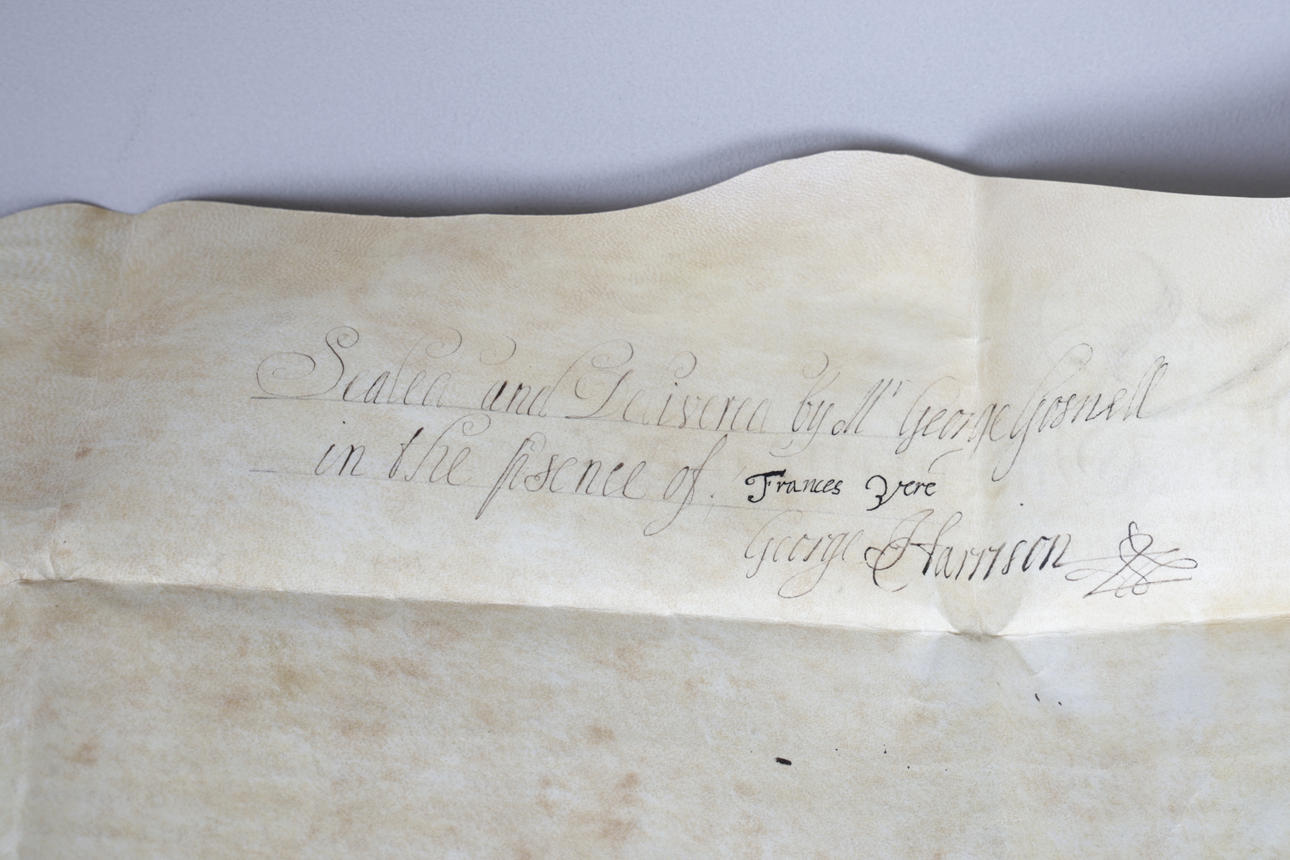 Sealed and Delivered by Mr George Gosnell
in the psence of. Frances Vere
George Harrison